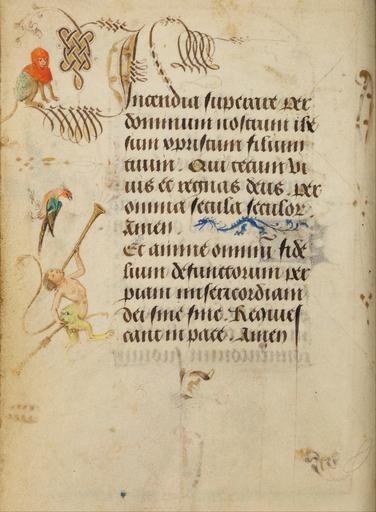 Incendia superare per
dominum nostrum ihe
sum xpristum filium
tuum. Qui tecum vi
uis et regnas deus. per
omnia secula seculor.
Amen.
Et anime omniũ fide
lium defunctorum per
piam misericordiam
dei sine fine. Requies
cant in pace. Amen